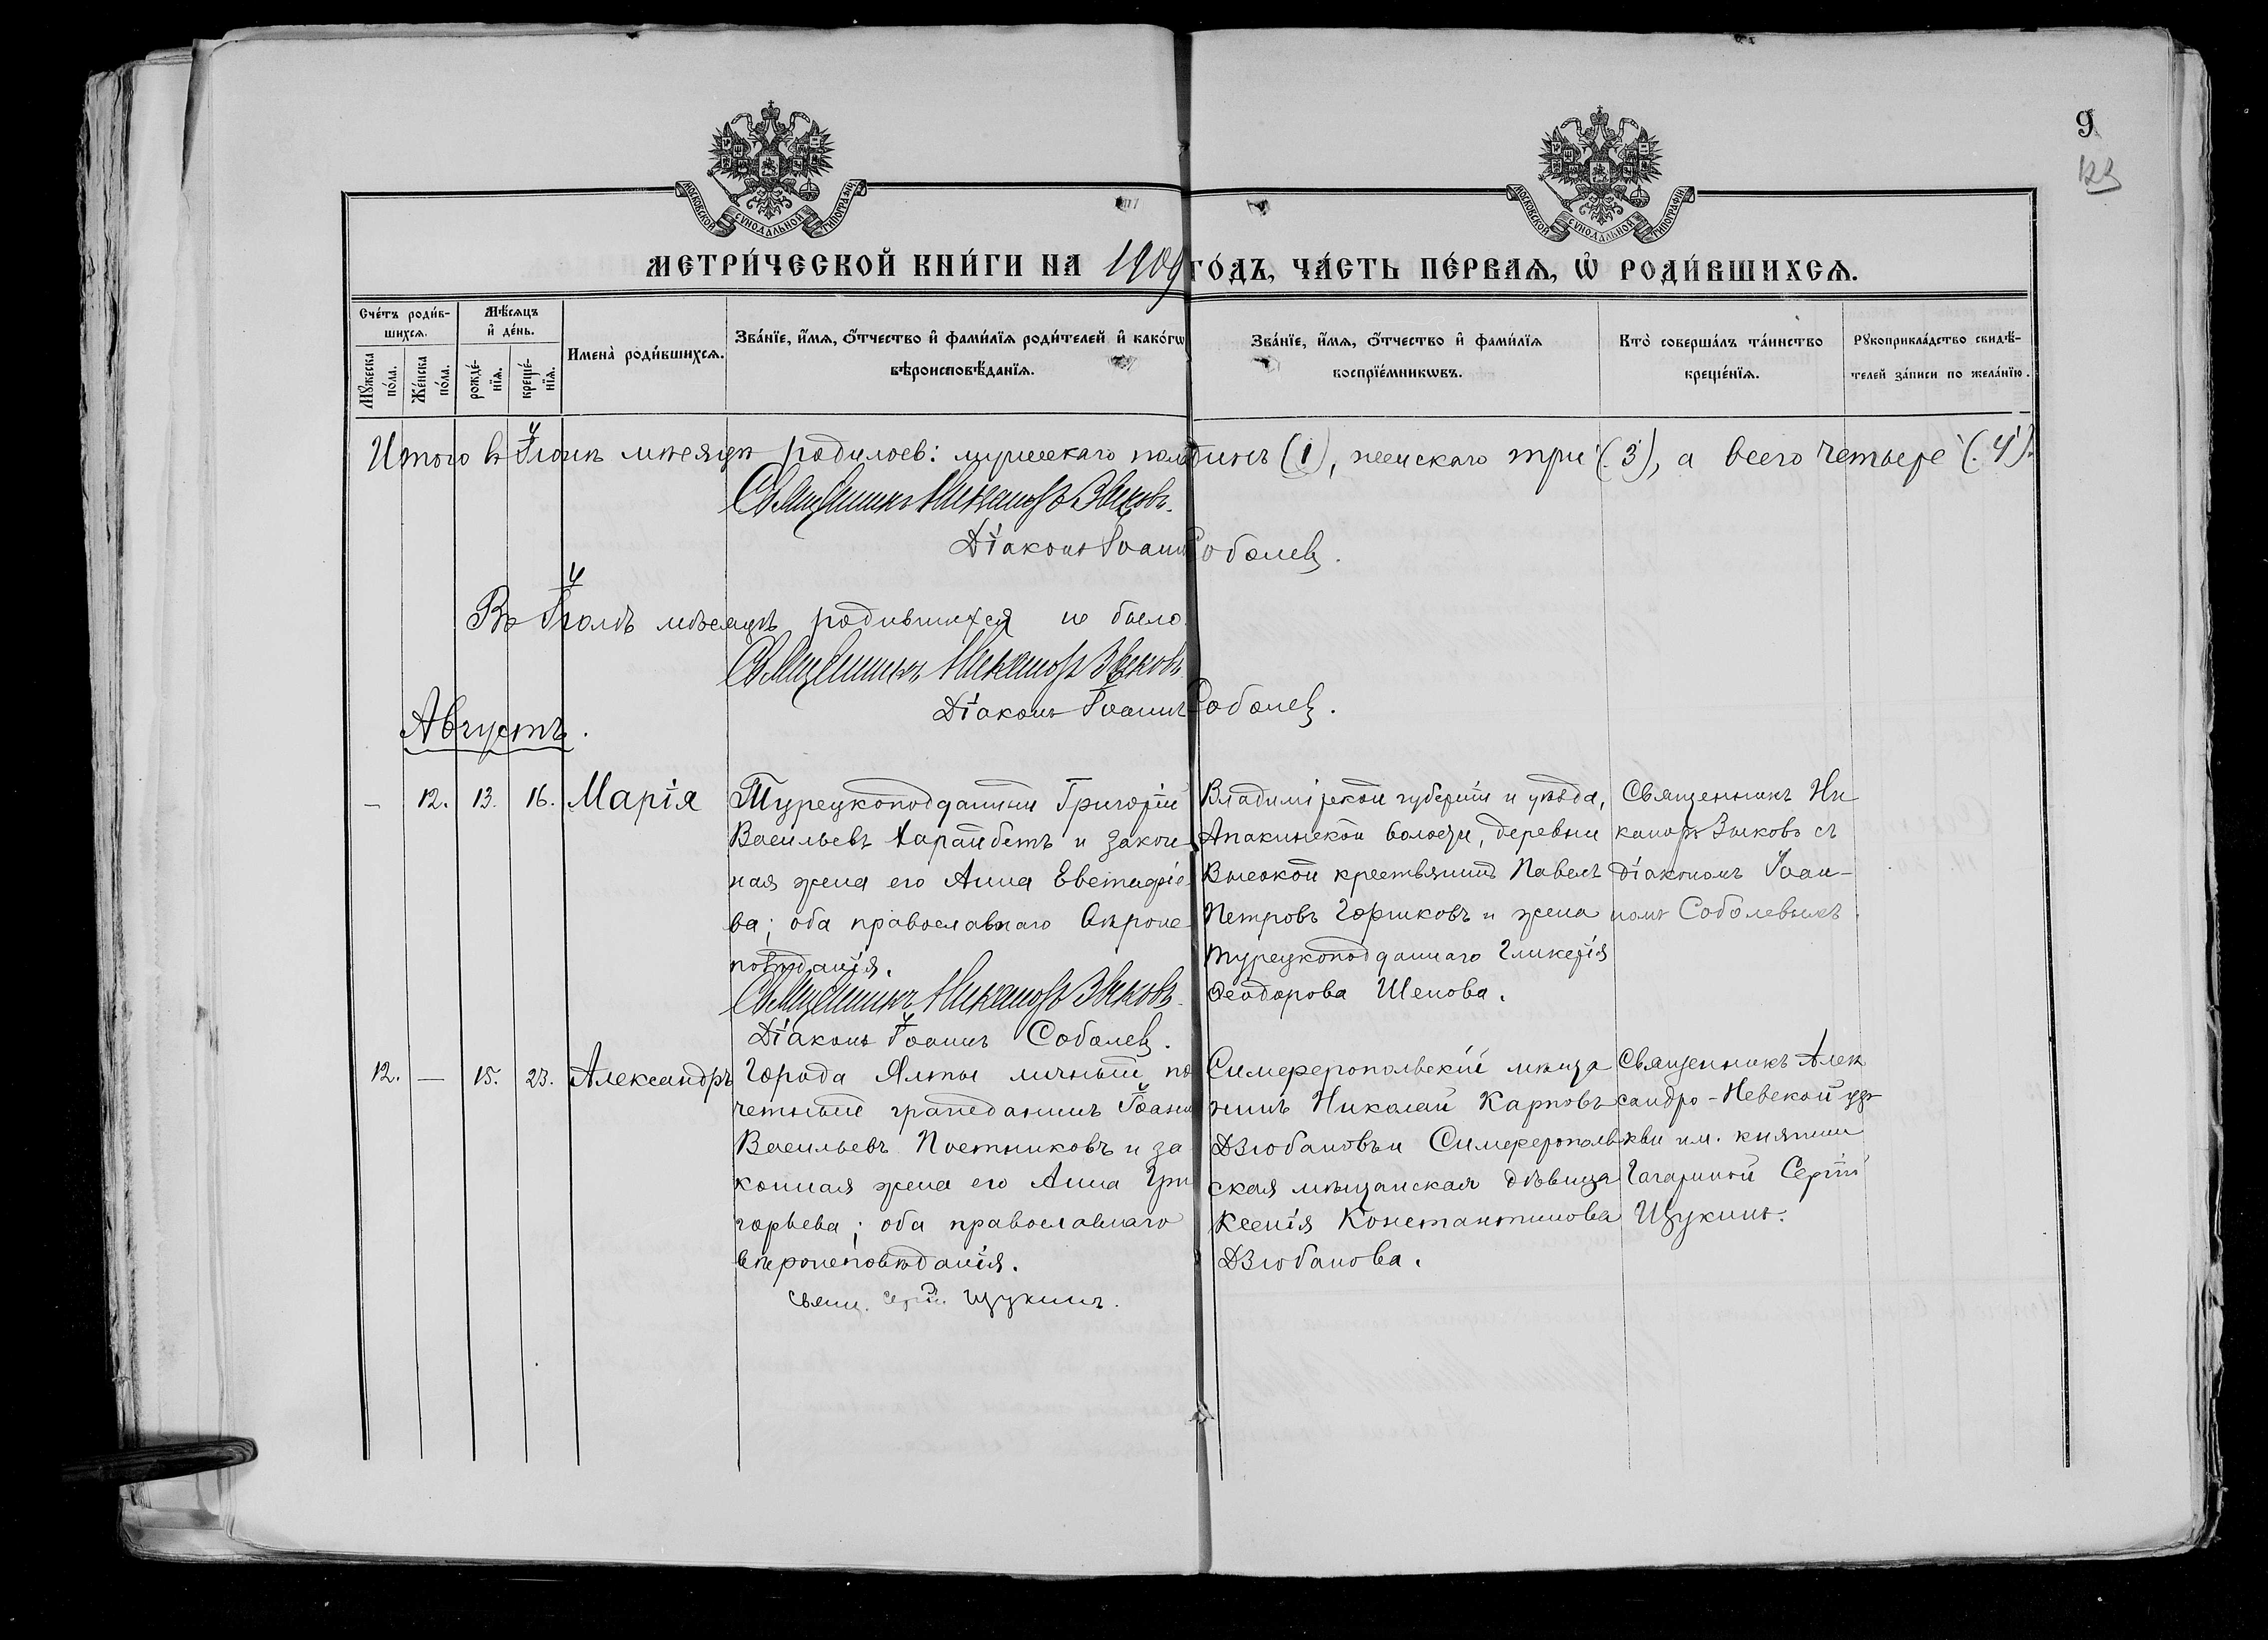 9
123
МОСКОВСКОЙ СѴНОДАЛЬНОЙ ТИПОГРАФІИ
МОСКОВСКОЙ СѴНОДАЛЬНОЙ ТИПОГРАФІИ
МЕТРИ́ЧЕСКОЙ КНИ́ГИ НА 1909 ГО́ДЪ, ЧА́СТЬ ПЕ́РВАѦ, Ѡ҆ РОДИ́ВШИХСѦ.
Сче́тъ роди́в-
шихсѧ.
Мꙋ́жеска по́ла.
Же́нска по́ла.
Мѣ́сѧцъ
и҆ де́нь.
рожде́-
нїѧ.
креще́-
нїѧ.
Имена̀ роди́вшихсѧ.
Зва́нїе, и҆́мѧ, ѻ҆́тчество и҆ фами́лїѧ роди́телей и҆ како́гѡ
вѣроисповѣ́данїѧ.
Зва́нїе, и҆́мѧ, ѻ҆́тчество и҆ фами́лїѧ
воспрїе́мникѡвъ.
Кто̀ соверша́лъ та́инство
креще́нїѧ.
Рꙋкоприкла́дство свидѣ́-
телей за́писи по жела́нїю.
Итого въ Іюнѣ мѣсяцѣ родилось: мужескаго пола одинъ (1), женскаго три (3), а всего четыре (4).
Священникъ Никаноръ Зыковъ.
Діаконъ Іоаннъ Соболев.
Въ Іюлѣ мѣсяцѣ родившихся не было.
Священникъ Никаноръ Зыковъ.
Діаконъ Іоаннъ Соболев.
Августъ.
— 12. 13. 16. Марія
Турецкоподданный Григорій
Васильевъ и закон-
ная жена его Анна Евстафіе-
ва; оба православнаго вѣроис-
повѣданія.
Священникъ Никаноръ Зыковъ.
Діаконъ Іоаннъ Соболев.
Владимірской губерніи и уѣзда,
волости, деревни
Высокой крестьянинъ Павелъ
Петровъ Горшковъ и жена
турецкоподданнаго Гликерія
Ѳеодорова Шенова.
Священникъ Ни
каноръ Зыковъ съ
Діакономъ Іоан-
номъ Соболевымъ.
12. — 15. 23. Александръ
Города Ялты личный по
четный гражданинъ Іоаннъ
Васильевъ Постниковъ и за
конная жена его Анна Гри
горьева; оба православнаго
вѣроисповѣданія.
Свящ. Сергій Щукинъ.
Симферопольскій мѣща
нинъ Николай Карповъ
Дзюбановъ и Симферополь
ская мѣщанская дѣвица
Ксенія Константинова
Дзюбанова.
Священникъ Алек
сандро-Невской цер
кви им. княгини
Гагариной Сергій
Щукинъ.